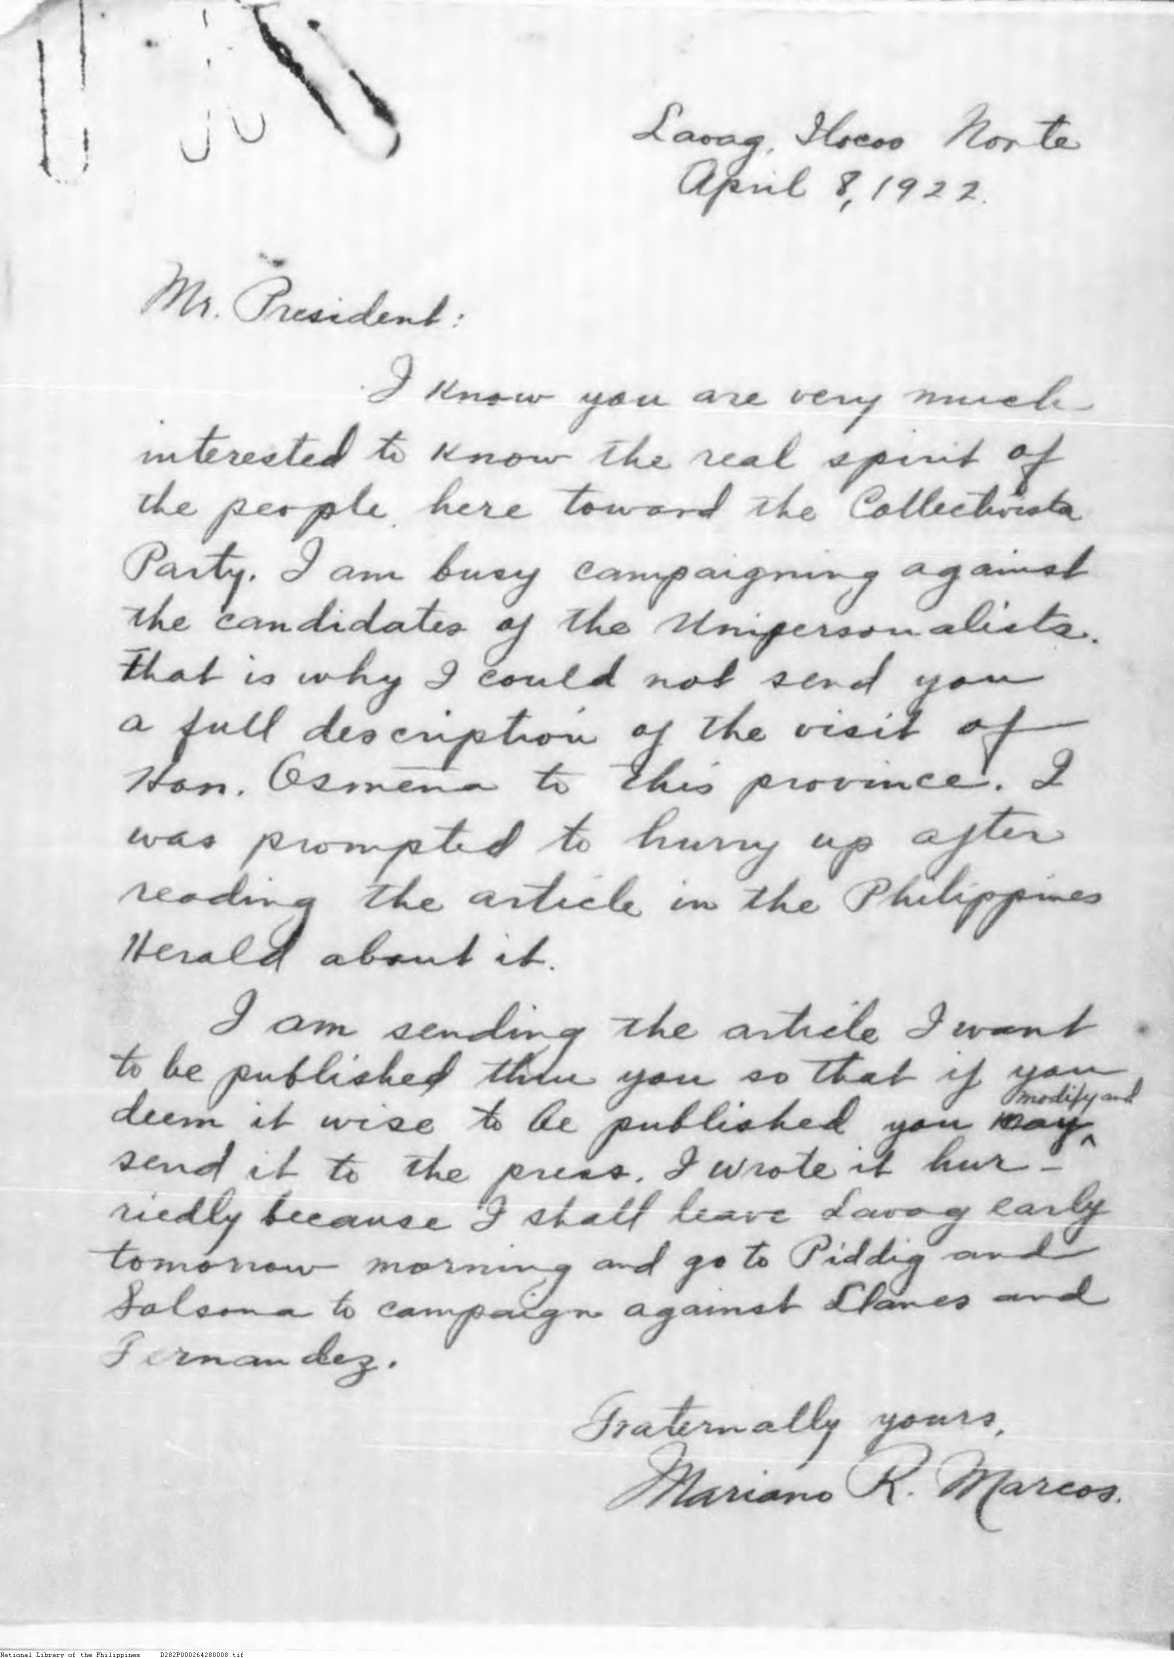 Laoag, Ilocos Norte
April 8, 1922.
Mr. President:
I know you are very much
interested to know the real spirit of
the people here toward the Collectivista
Party. I am busy campaigning against
the candidates of the Unipersonalists.
That is why I could not send you
a full description of the visit of
Hon. Osmeña to this province. I
was prompted to hurry up after
reading the article in the Philippines
Herald about it.
I am sending the article I want
to be published thru you so that if you
deem it wise to be published you may ^ modify and
send it to the press. I wrote it hur-
riedly because I shall leave Laoag early
tomorrow morning and go to Piddig and
Solsona to campaign against Llanes and
Fernandez.
Fraternally yours,
Mariano R. Marcos.
National Library of the Philippines D282P000264280008.tif